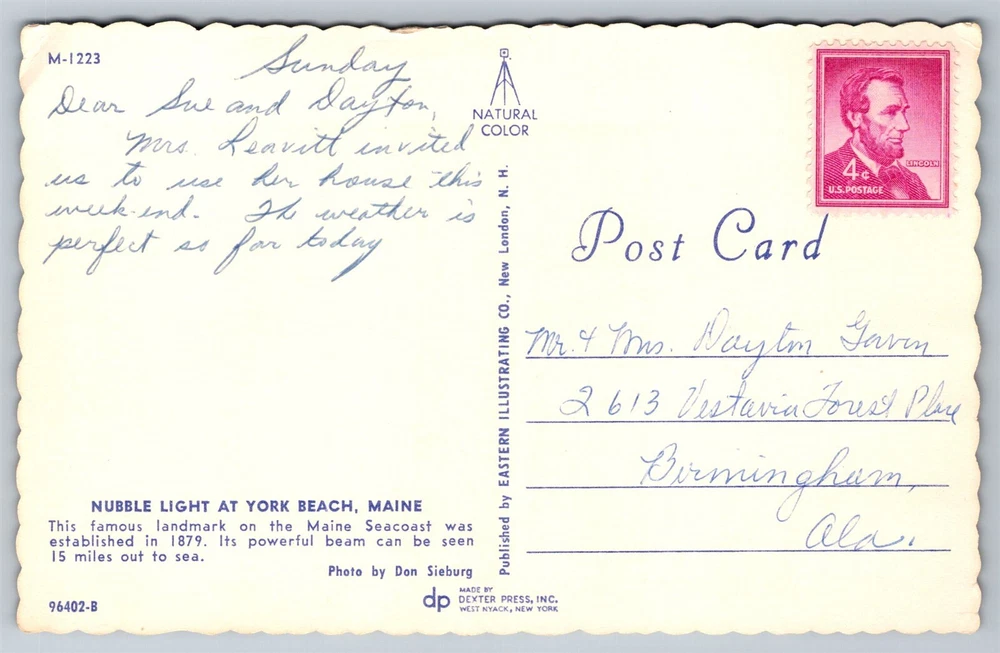 M-1223
Sunday
Dear Sue and Dayton,
Mrs. Leavitt invited
us to use her house this
week-end. Th weather is
perfect so far today
NUBBLE LIGHT AT YORK BEACH, MAINE
This famous landmark on the Maine Seacoast was
established in 1879. Its powerful beam can be seen
15 miles out to sea.
Photo by Don Sieburg
96402-B
NATURAL
COLOR
Published by EASTERN ILLUSTRATING CO., New London, N. H.
dp MADE BY
DEXTER PRESS, INC.
WEST NYACK, NEW YORK
LINCOLN
4¢
U.S. POSTAGE
Post Card
Mr. & Mrs. Dayton Gavin
2613 Vestavia Forest Place
Birmingham,
Ala.